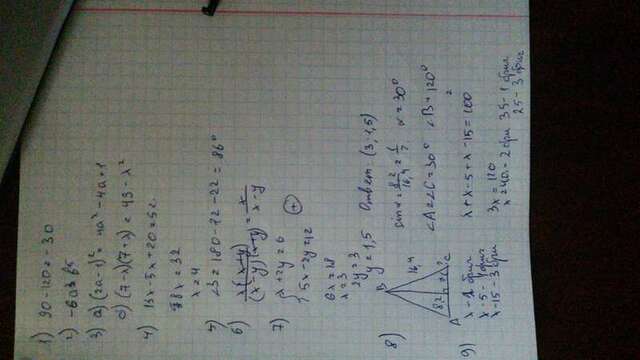 1) 90-120=-30
2) -6a3 b5
3) a) (2a-1)² = 4a² -4a+1
б) (7-x)(7+x) = 49 - x²
4) 13x-5x+20=52
8x = 32
x = 4
5) ∠3=180-72-22 = 86°
6) x(x+y) / (x-y)(x+y) = x / x-y
7) { x+2y=6
5x-2y=12 (+)
6x=18
x=3
2y=3
y=1,5 Ответ: (3; 1,5)
8) B
16,4
8,2
A C
sinα = 8,2/16,4 = 1/2 α=30°
∠A=∠C=30° ∠B=120°
9) x - 1 бриг x+x-5+x-15=100
x-5-
x-15-3 бри 3x=120
x=40 - 2 бри 35-1 бриг
25-3 бриг